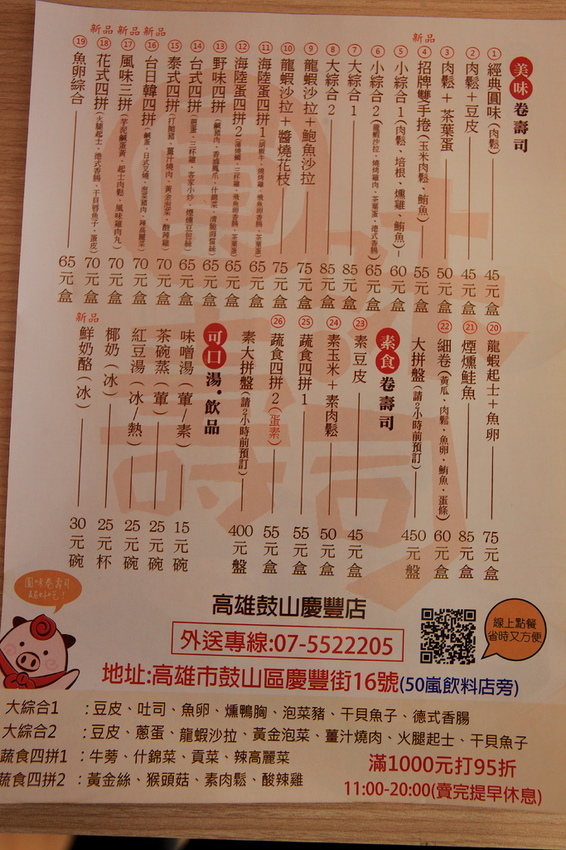 美味卷壽司
① 經典圓味(肉鬆) 45元盒
② 肉鬆+豆皮 45元盒
③ 肉鬆+茶葉蛋 50元盒
新品
④ 招牌雙手捲(玉米肉鬆、鮪魚) 55元盒
⑤ 小綜合1(肉鬆、培根、燻雞、鮪魚) 60元盒
⑥ 小綜合2(龍蝦沙拉、燒烤雞肉、茶葉蛋、德式香腸) 65元盒
⑦ 大綜合1 85元盒
⑧ 大綜合2 85元盒
⑨ 龍蝦沙拉+鮑魚沙拉 75元盒
⑩ 龍蝦沙拉+醬燒花枝 75元盒
⑪ 海陸蛋四拼1 65元盒
⑫ 海陸蛋四拼2 65元盒
⑬ 野味四拼 65元盒
⑭ 台式四拼 65元盒
⑮ 泰式四拼 65元盒
新品
⑯ 台日韓四拼 70元盒
新品
⑰ 風味三拼 70元盒
新品
⑱ 花式四拼(火腿起士、德式香腸、干貝唇魚子、蛋皮) 70元盒
⑲ 魚卵綜合 65元盒
⑳ 龍蝦起士+魚卵 75元盒
㉑ 煙燻鮭魚 85元盒
㉒ 細卷(黃瓜、肉鬆、魚卵、鮪魚、蛋條) 60元盒
大拼盤(請2小時前預訂) 450元盤
素食卷壽司
㉓ 素豆皮 45元盒
㉔ 素玉米+素肉鬆 50元盒
㉕ 蔬食四拼1 55元盒
㉖ 蔬食四拼2(蛋素) 55元盒
素大拼盤(請2小時前預訂) 400元盤
可口湯·飲品
味噌湯(葷/素) 15元碗
茶碗蒸(葷) 25元碗
紅豆湯(冰/熱) 25元碗
椰奶(冰) 25元杯
新品
鮮奶酪(冰) 30元碗
高雄鼓山慶豐店
外送專線:07-5522205
線上點餐
省時又方便
地址:高雄市鼓山區慶豐街16號(50嵐飲料店旁)
大綜合1:豆皮、吐司、魚卵、燻鴨胸、泡菜豬、干貝魚子、德式香腸
大綜合2:豆皮、蔥蛋、龍蝦沙拉、黃金泡菜、薑汁燒肉、火腿起士、干貝魚子
蔬食四拼1:牛蒡、什錦菜、貢菜、辣高麗菜
蔬食四拼2:黃金絲、猴頭菇、素肉鬆、酸辣雞
滿1000元打95折
11:00-20:00(賣完提早休息)